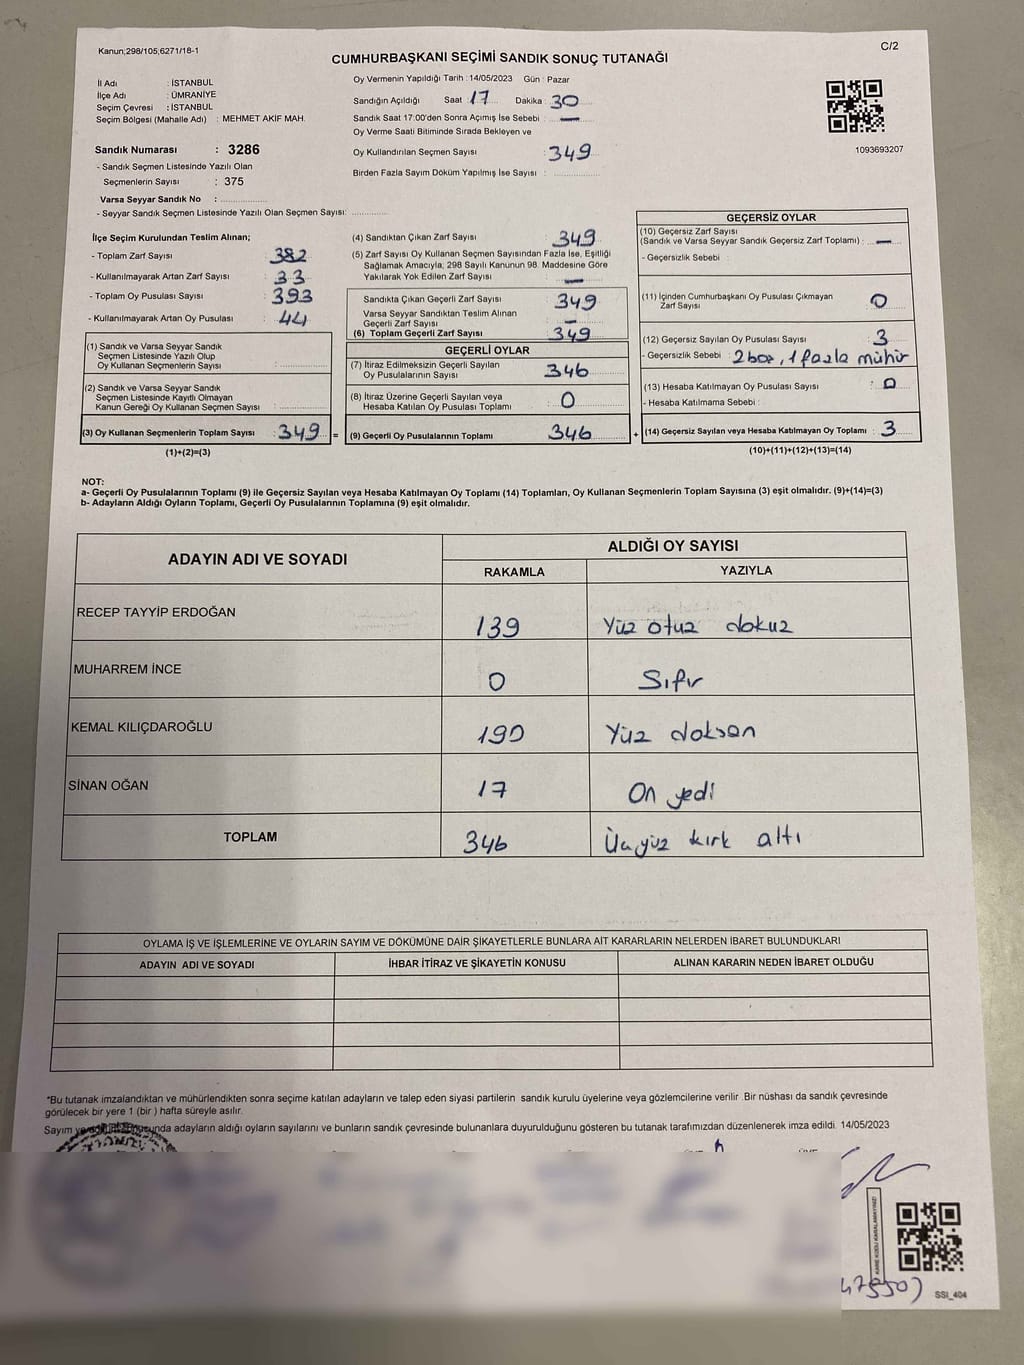 Kanun;298/105;6271/18-1
C/2
CUMHURBAŞKANI SEÇİMİ SANDIK SONUÇ TUTANAĞI
İl Adı : İSTANBUL
İlçe Adı : ÜMRANİYE
Seçim Çevresi : İSTANBUL
Seçim Bölgesi (Mahalle Adı) : MEHMET AKİF MAH.
Sandık Numarası : 3286
- Sandık Seçmen Listesinde Yazılı Olan
Seçmenlerin Sayısı : 375
Varsa Seyyar Sandık No :
- Seyyar Sandık Seçmen Listesinde Yazılı Olan Seçmen Sayısı:
Oy Vermenin Yapıldığı Tarih : 14/05/2023 Gün : Pazar
Sandığın Açıldığı Saat : 17 Dakika : 30
Sandık Saat 17:00'den Sonra Açımış İse Sebebi : —
Oy Verme Saati Bitiminde Sırada Bekleyen ve
Oy Kullandırılan Seçmen Sayısı : 349
Birden Fazla Sayım Döküm Yapılmış İse Sayısı :
1093693207
İlçe Seçim Kurulundan Teslim Alınan;
- Toplam Zarf Sayısı : 382
- Kullanılmayarak Artan Zarf Sayısı : 33
- Toplam Oy Pusulası Sayısı : 393
- Kullanılmayarak Artan Oy Pusulası : 44
(1) Sandık ve Varsa Seyyar Sandık
Seçmen Listesinde Yazılı Olup
Oy Kullanan Seçmenlerin Sayısı :
(2) Sandık ve Varsa Seyyar Sandık
Seçmen Listesinde Kayıtlı Olmayan
Kanun Gereği Oy Kullanan Seçmen Sayısı :
(3) Oy Kullanan Seçmenlerin Toplam Sayısı : 349 =
(1)+(2)=(3)
(4) Sandıktan Çıkan Zarf Sayısı : 349
(5) Zarf Sayısı Oy Kullanan Seçmen Sayısından Fazla İse, Eşitliği
Sağlamak Amacıyla; 298 Sayılı Kanunun 98. Maddesine Göre
Yakılarak Yok Edilen Zarf Sayısı : —
Sandıkta Çıkan Geçerli Zarf Sayısı : 349
Varsa Seyyar Sandıktan Teslim Alınan
Geçerli Zarf Sayısı : —
(6) Toplam Geçerli Zarf Sayısı : 349
GEÇERLİ OYLAR
(7) İtiraz Edilmeksizin Geçerli Sayılan
Oy Pusulalarının Sayısı : 346
(8) İtiraz Üzerine Geçerli Sayılan veya
Hesaba Katılan Oy Pusulası Toplamı : 0
(9) Geçerli Oy Pusulalarının Toplamı : 346 +
GEÇERSİZ OYLAR
(10) Geçersiz Zarf Sayısı
(Sandık ve Varsa Seyyar Sandık Geçersiz Zarf Toplamı) : —
- Geçersizlik Sebebi :
(11) İçinden Cumhurbaşkanı Oy Pusulası Çıkmayan
Zarf Sayısı : 0
(12) Geçersiz Sayılan Oy Pusulası Sayısı : 3
- Geçersizlik Sebebi : 2 boş, 1 fazla mühür
(13) Hesaba Katılmayan Oy Pusulası Sayısı : 0
- Hesaba Katılmama Sebebi :
(14) Geçersiz Sayılan veya Hesaba Katılmayan Oy Toplamı : 3
(10)+(11)+(12)+(13)=(14)
NOT:
a- Geçerli Oy Pusulalarının Toplamı (9) ile Geçersiz Sayılan veya Hesaba Katılmayan Oy Toplamı (14) Toplamları, Oy Kullanan Seçmenlerin Toplam Sayısına (3) eşit olmalıdır. (9)+(14)=(3)
b- Adayların Aldığı Oyların Toplamı, Geçerli Oy Pusulalarının Toplamına (9) eşit olmalıdır.
ADAYIN ADI VE SOYADI
ALDIĞI OY SAYISI
RAKAMLA YAZIYLA
RECEP TAYYİP ERDOĞAN 139 Yüz otuz dokuz
MUHARREM İNCE 0 Sıfır
KEMAL KILIÇDAROĞLU 190 Yüz doksan
SİNAN OĞAN 17 On yedi
TOPLAM 346 Üçyüz kırk altı
OYLAMA İŞ VE İŞLEMLERİNE VE OYLARIN SAYIM VE DÖKÜMÜNE DAİR ŞİKAYETLERLE BUNLARA AİT KARARLARIN NELERDEN İBARET BULUNDUKLARI
ADAYIN ADI VE SOYADI İHBAR İTİRAZ VE ŞİKAYETİN KONUSU ALINAN KARARIN NEDEN İBARET OLDUĞU
*Bu tutanak imzalandıktan ve mühürlendikten sonra seçime katılan adayların ve talep eden siyasi partilerin sandık kurulu üyelerine veya gözlemcilerine verilir. Bir nüshası da sandık çevresinde
görülecek bir yere 1 (bir ) hafta süreyle asılır.
Sayım ve adayların aldığı oyların sayılarını ve bunların sandık çevresinde bulunanlara duyurulduğunu gösteren bu tutanak tarafımızdan düzenlenerek imza edildi. 14/05/2023
KARE KODU KARALAMAYINIZ!
SSI_404